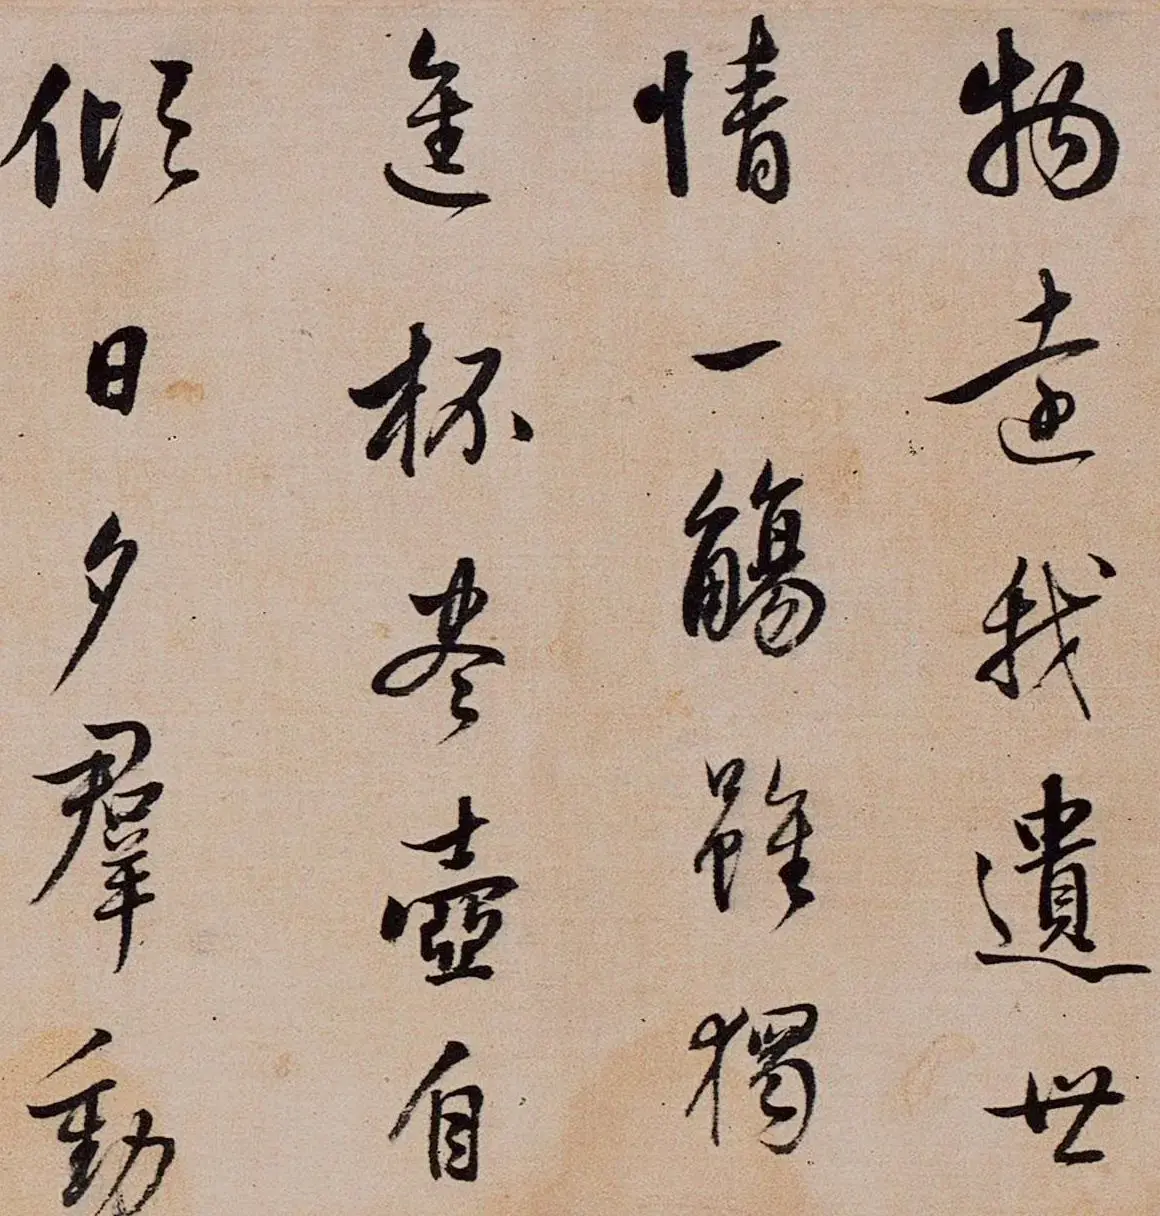 物遠我遺世
情一觴雖獨
進杯盡壺自
傾日夕羣動